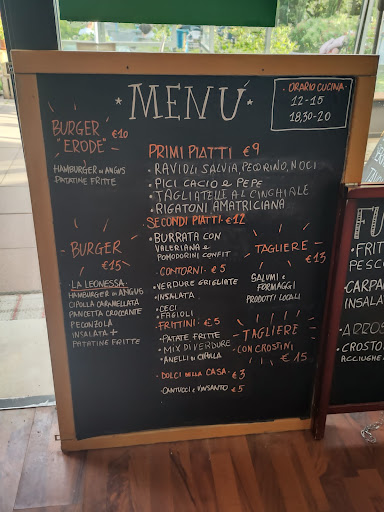 MENÚ
ORARIO CUCINA
12-15
18,30-20
BURGER
"ERODE" €10
HAMBURGER DI ANGUS
PATATINE FRITTE
BURGER
€15
LA LEONESSA
HAMBURGER DI ANGUS
CIPOLLA CARAMELLATA
PANCETTA CROCCANTE
PECONZOLA
INSALATA +
PATATINE FRITTE
PRIMI PIATTI €9
• RAVIOLI SALVIA, PECORINO, NOCI
• PICI CACIO e PEPE
• TAGLIATELLE AL CINGHIALE
• RIGATONI AMATRICIANA
SECONDI PIATTI €12
• BURRATA CON
VALERIANA e
POMODORINI CONFIT
• CONTORNI: €5
• VERDURE GRIGLIATE
• INSALATA
• CECI
• FAGIOLI
FRITTINI: €5
• PATATE FRITTE
• MIX DI VERDURE
• ANELLI DI CIPOLLA
• DOLCI DELLA CASA €3
• CANTUCCI e VINSANTO €5
TAGLIERE
€13
SALUMI e
FORMAGGI
PRODOTTI LOCALI
TAGLIERE
CON CROSTINI
€15
• FRIT
PESC
• CARPA
INSALA
ARROS
• CROSTO
ACCIUGHE